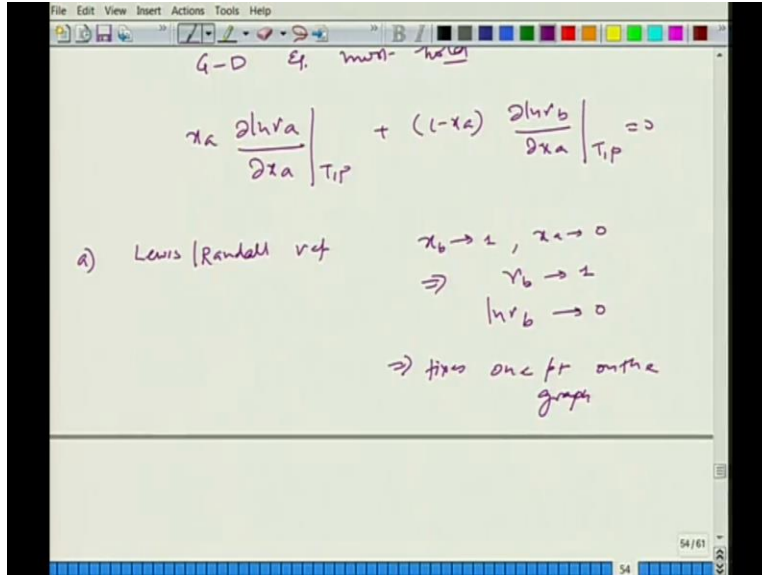 File Edit View Insert Actions Tools Help
B I
G-D Eq. must hold
xa ∂lnγa/∂xa |T,P + (1-xa) ∂lnγb/∂xa |T,P = 0
a) Lewis/Randall ref xb → 1, xa → 0
⇒ γb → 1
lnγb → 0
⇒ fixes one pt on the
graph
54/61
54